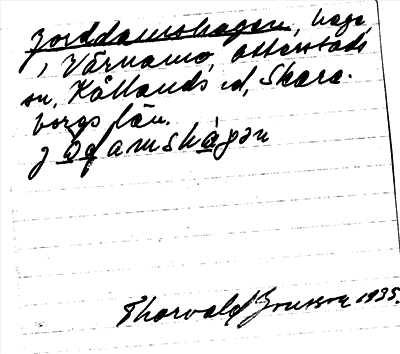 Jorddamshagen, hage
i Värnamo, Otterstads
sn, Kållands hd, Skara-
borgs län.
jọ̄ḍamshāgən
Thorvald Jonsson 1935.